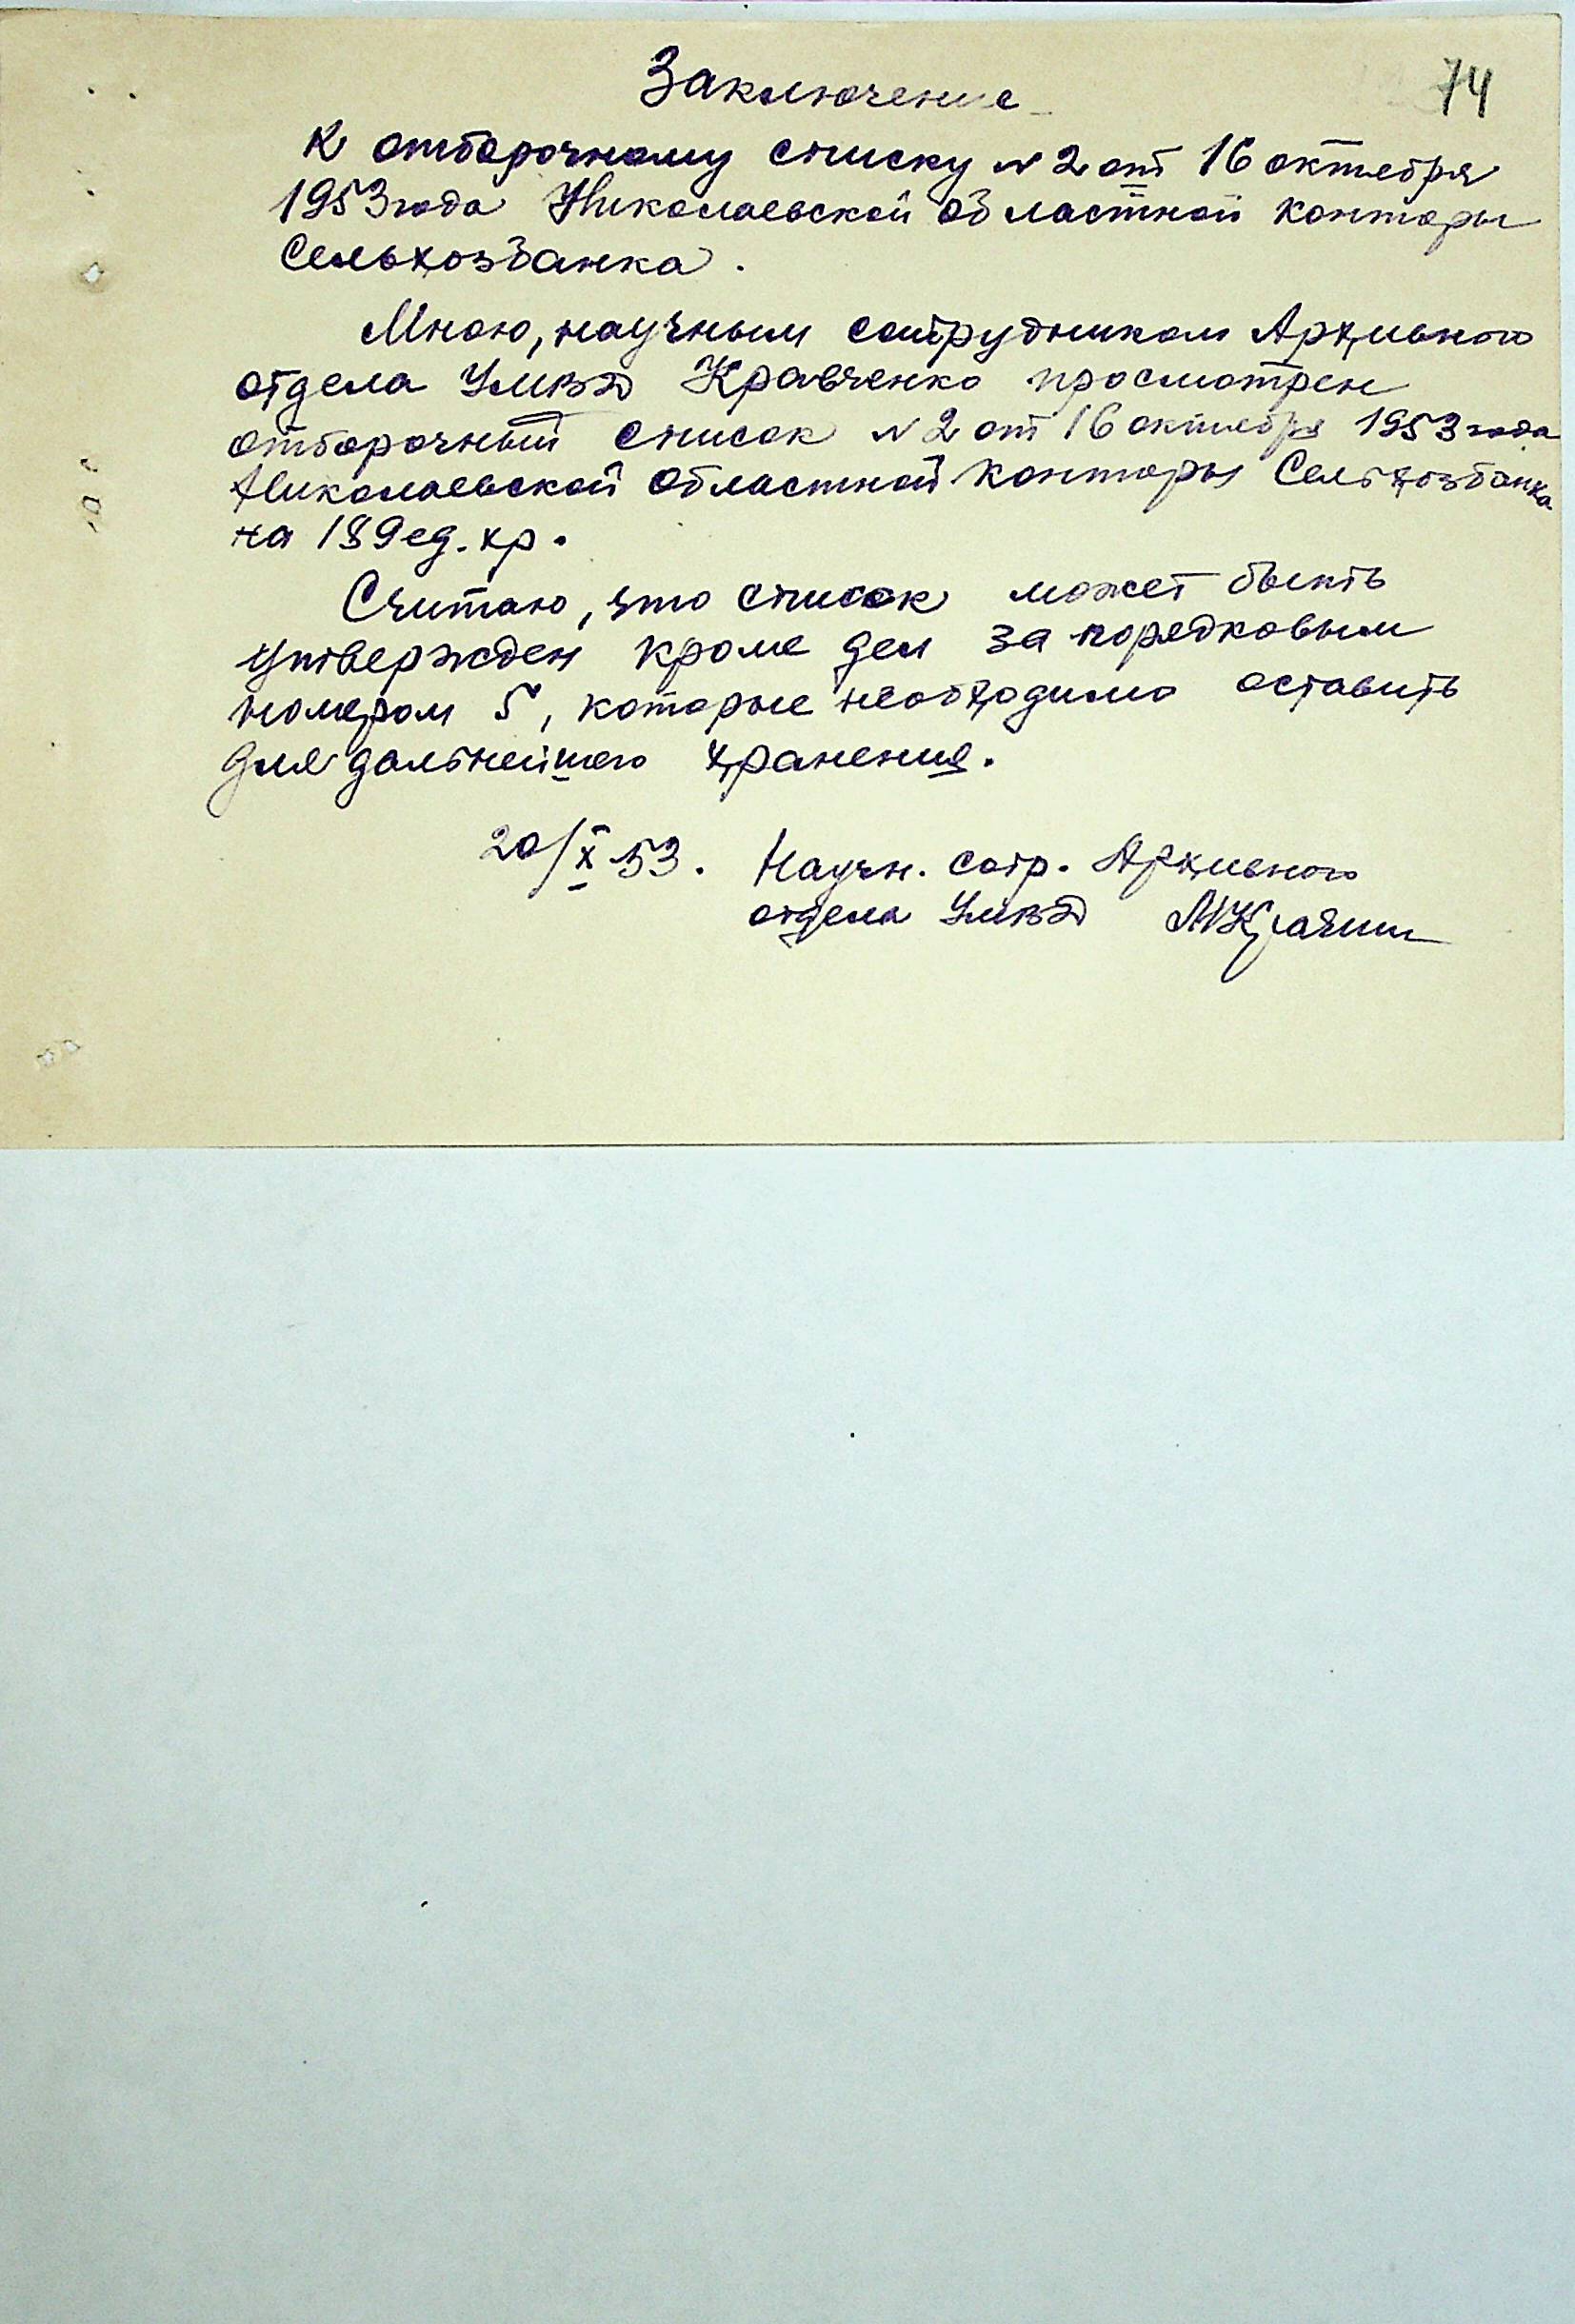 74
Заключение
К отборочному списку N 2 от 16 октября
1953 года Николаевской областной конторы
Сельхозбанка.
Мною, научным сотрудником Архивного
отдела УМВД Кравченко просмотрен
отборочный список N 2 от 16 октября 1953 года
Николаевской областной конторы Сельхозбанка
на 189 ед. хр.
Считаю, что список может быть
утвержден кроме дел за порядковым
номером 5, которые необходимо оставить
для дальнейшего хранения.
20/X 53. Научн. сотр. Архивного
отдела УМВД